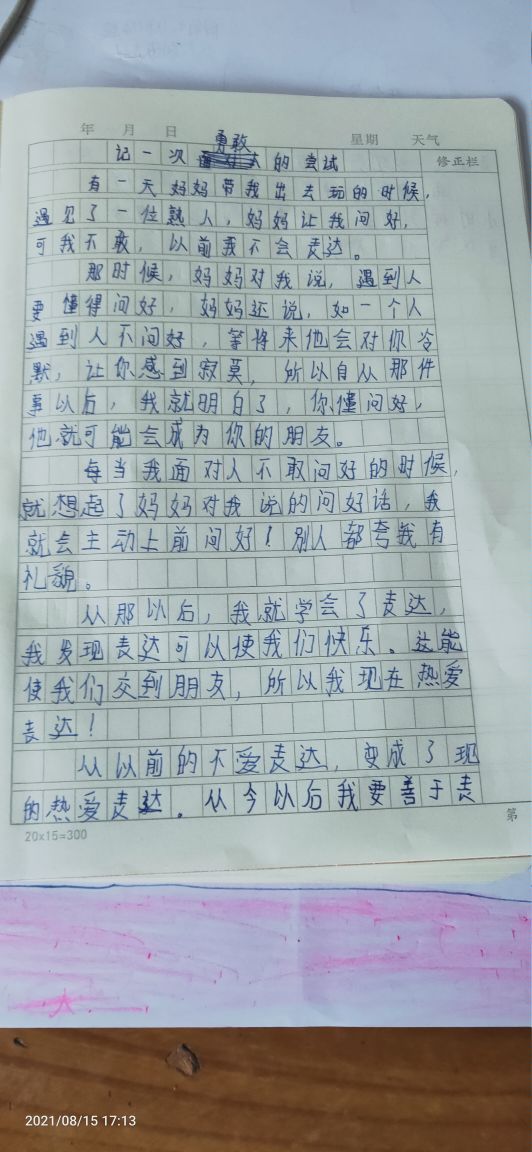 年 月 日 星期 天气
勇敢
记一次的尝试 修正栏
有一天妈妈带我出去玩的时候，
遇见了一位熟人，妈妈让我问好，
可我不敢，以前我不会表达。
那时候，妈妈对我说，遇到人
要懂得问好，妈妈还说，如一个人
遇到人不问好，等将来他会对你冷
默，让你感到寂寞，所以自从那件
事以后，我就明白了，你懂问好，
他就可能会成为你的朋友。
每当我面对人不敢问好的时候，
就想起了妈妈对我说的问好话，我
就会主动上前问好！别人都夸我有
礼貌。
从那以后，我就学会了表达，
我发现表达可以使我们快乐。这能
使我们交到朋友，所以我现在热爱
表达！
从以前的不爱表达，变成了现
的热爱表达。从今以后我要善于表
20×15=300 第
2021/08/15 17:13